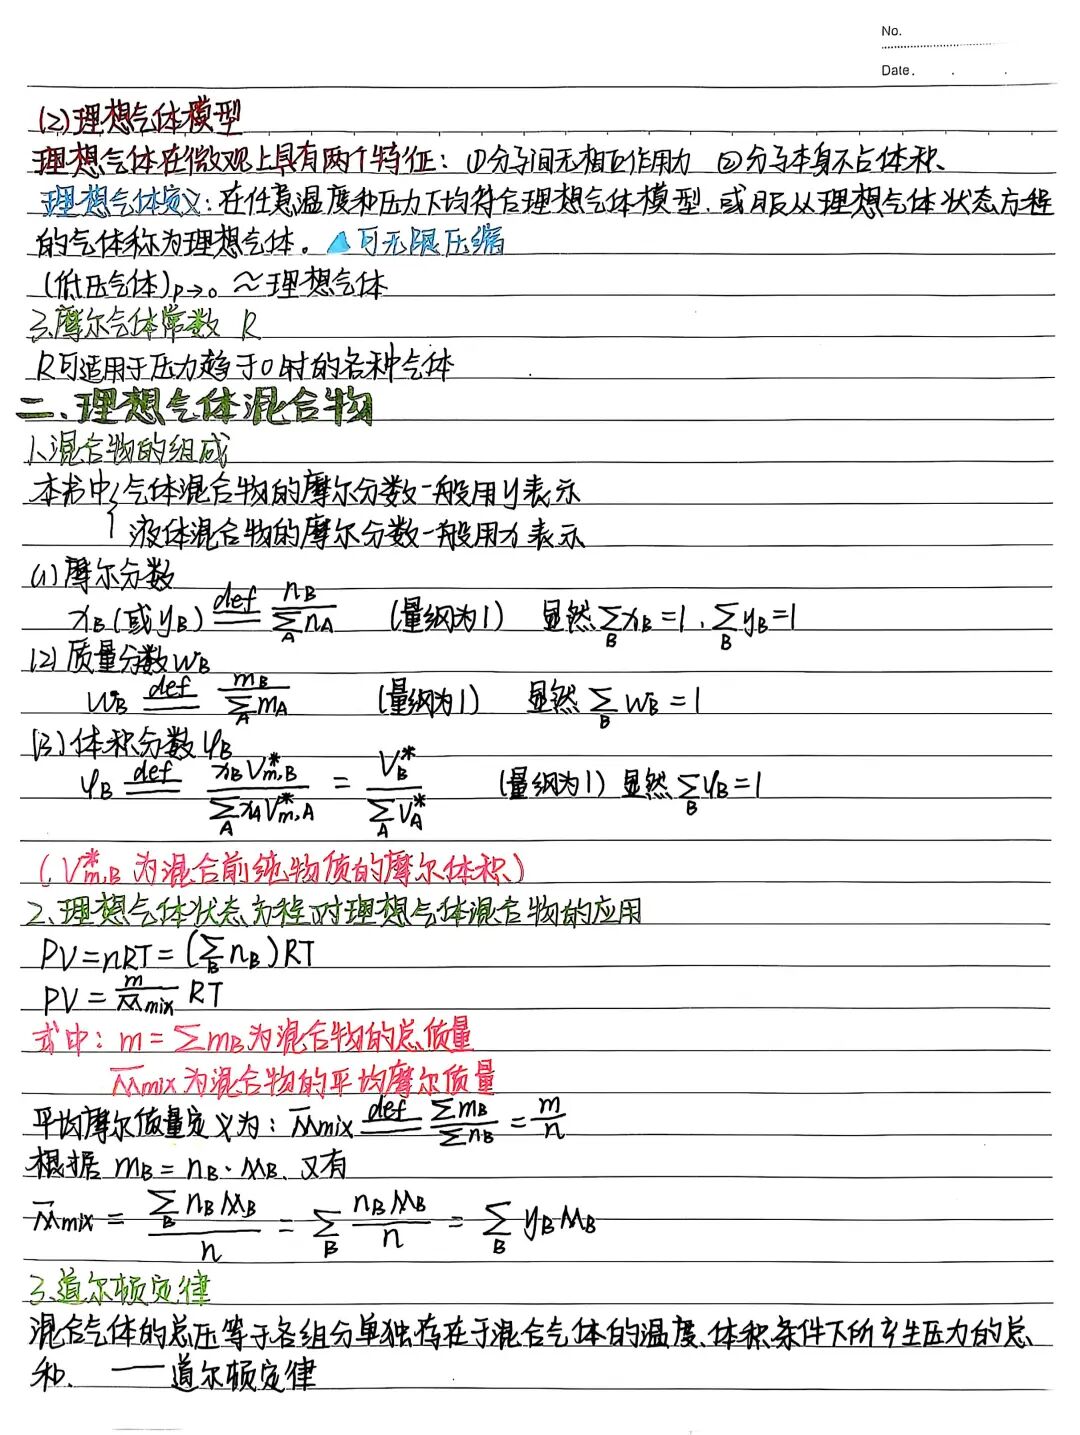 No.
Date. . .
(2)理想气体模型
理想气体在微观上具有两个特征：①分子间无相互作用力 ②分子本身不占体积.
理想气体定义：在任意温度和压力下均符合理想气体模型.或服从理想气体状态方程
的气体称为理想气体。▲可无限压缩
(低压气体)p→0 ≈理想气体
3.摩尔气体常数 R
R可适用于压力趋于0时的各种气体
二、理想气体混合物
1.混合物的组成
本书中{气体混合物的摩尔分数一般用y表示
液体混合物的摩尔分数一般用x表示
(1)摩尔分数
xB(或yB) def nB/∑A nA (量纲为1) 显然∑B xB=1.∑B yB=1
(2)质量分数wB
wB def mB/∑A mA (量纲为1) 显然∑B wB=1
(3)体积分数φB
φB def xBV*m,B/∑A xAV*m,A = V*B/∑A V*A (量纲为1) 显然∑B φB=1
(V*m,B为混合前纯物质的摩尔体积)
2.理想气体状态方程对理想气体混合物的应用
PV=nRT=(∑B nB)RT
PV=m/M̄mix RT
式中：m=∑mB为混合物的总质量
M̄mix为混合物的平均摩尔质量
平均摩尔质量定义为：M̄mix def ∑mB/∑nB=m/n
根据 mB=nB·MB.又有
M̄mix = ∑B nBMB/n = ∑B nBMB/n = ∑B yBMB
3.道尔顿定律
混合气体的总压等于各组分单独存在于混合气体的温度.体积条件下所产生压力的总
和. ——道尔顿定律